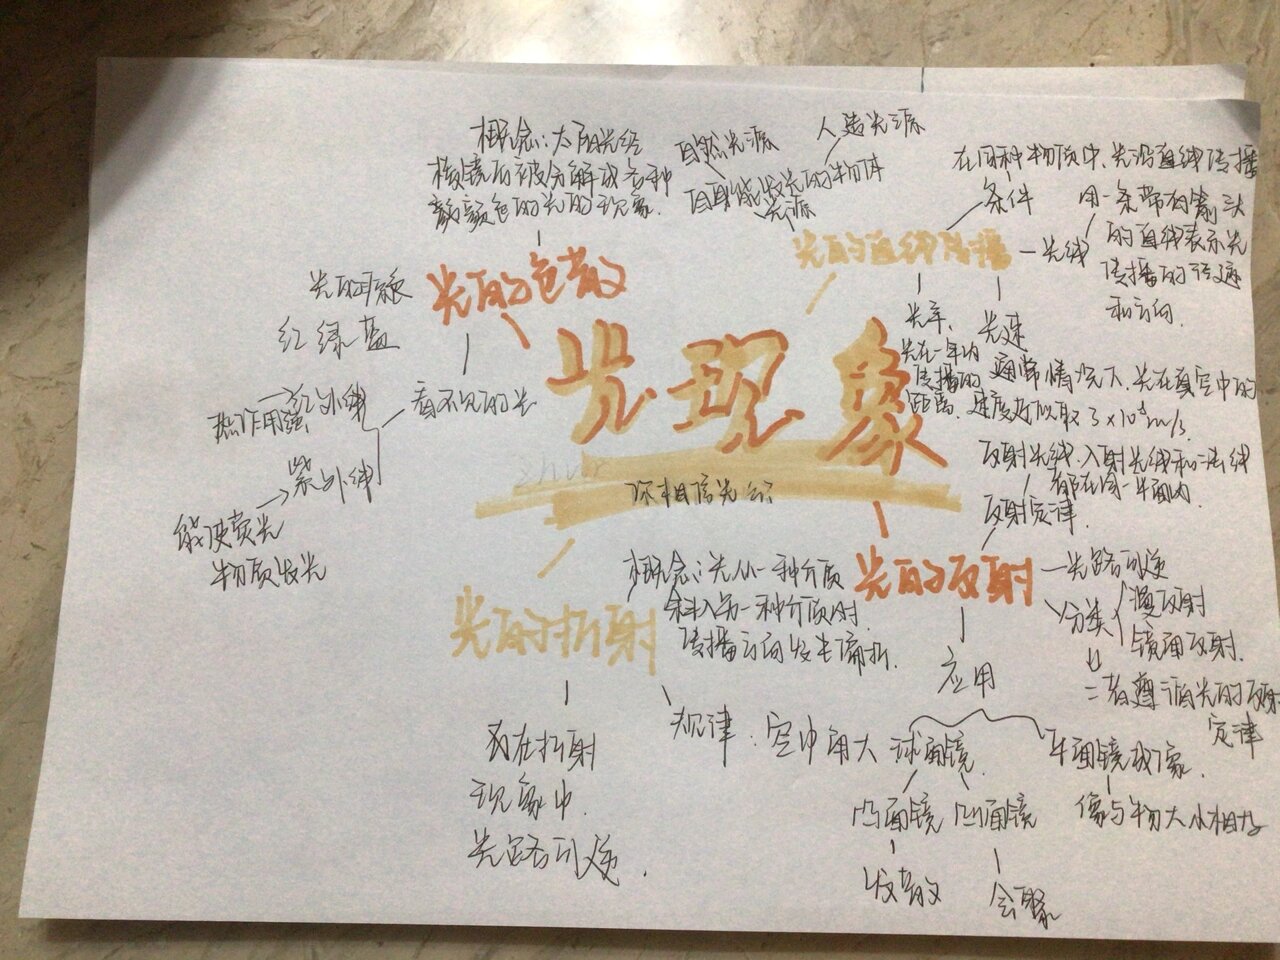 光现象
你相信光么
光的色散
概念:太阳光经
棱镜后被分解成各种
颜色的光的现象.
光的原色
红绿蓝
看不见的光
红外线
热作用强
紫外线
能使荧光
物质发光
光的直线传播
自然光源
人造光源
自身能发光的物体
光源
在同种物质中、光沿直线传播
条件
光线
用一条带有箭头
的直线表示光
传播的径迹
和方向.
光年、
光在一年内
传播的
距离.
光速
通常情况下、光在真空中的
速度近似取 3×10⁸m/s.
光的反射
反射光线、入射光线和法线
都在同一平面内
反射定律.
光路可逆
分类
漫反射
镜面反射.
二者遵循光的反射
定律
应用
球面镜.
凸面镜
发散
凹面镜
会聚
平面镜成像.
像与物大小相等
光的折射
概念:光从一种介质
斜入另一种介质时.
传播方向发生偏折.
规律:空中角大
而在折射
现象中.
光路可逆.